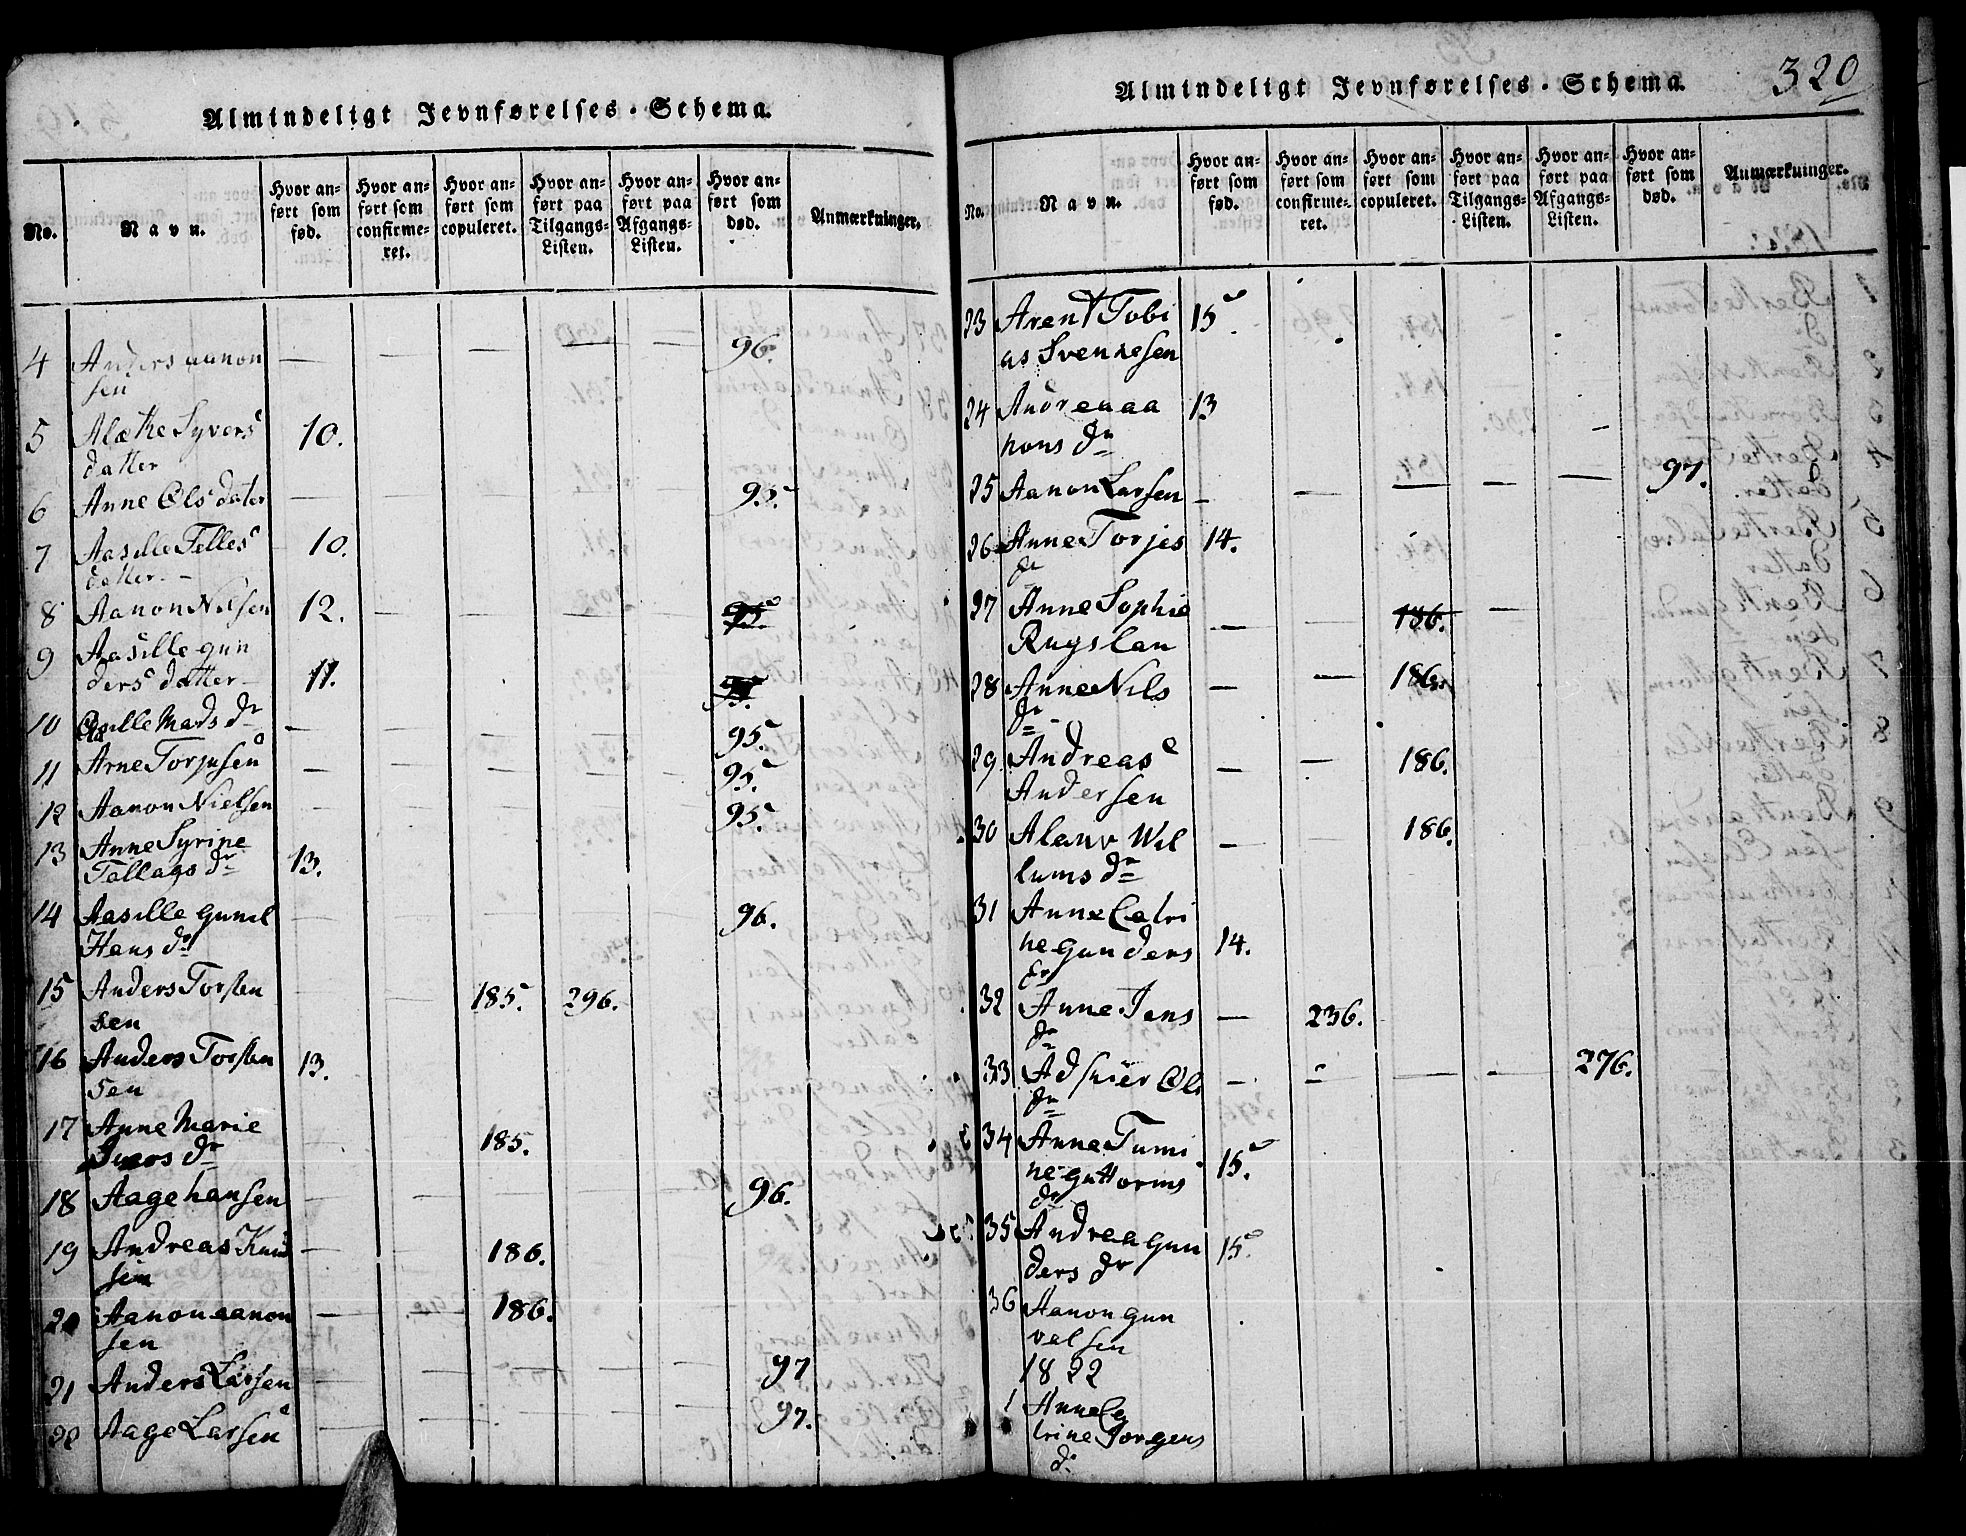 Almindeligt Jevnførelses-Schema.
No.
Navn.
Hvor anført som fød.
Hvor anført som confirmeret.
Hvor anført som copuleret.
Hvor anført paa Tilgangs-Listen.
Hvor anført paa Afgangs-Listen.
Hvor anført som død.
Anmærkninger.
4 Anders aanon — — — — — 96.
sen
5 Alæthe Syvers 10.
datter
6 Anne Ols dater — — — — — 95.
7 Aasille Telles 10.
datter —
8 Aanon Nielsen 12. — — — — 95.
9 Aasille gun
ders datter — 11. 95.
10 Aasille Mads dr — — — — — 95.
11 Arne Torjusen — — — — — 95.
12 Aanon Nielsen — — — — — 95.
13 Anne Syrine
Tallags dr 13.
14 Aasille gunil — — — — — 96.
Hans dr
15 Anders Torsten — — 185. 296.
sen
16 Anders Torsten 13.
sen
17 Anne Marie — — 185.
Ivers dr
18 Aage hansen — — — — — 96.
19 Andreas Knud — — 186.
sen
20 Aanon aanon — — 186.
sen
21 Anders Larsen — — — — — 97
22 Aage Larsen — — — — — 97.
Almindeligt Jevnførelses-Schema.
320
No.
Navn.
Hvor anført som fød.
Hvor anført som confirmeret.
Hvor anført som copuleret.
Hvor anført paa Tilgangs-Listen.
Hvor anført paa Afgangs-Listen.
Hvor anført som død.
Anmærkninger.
23 Arent Tobi 15.
as Svennesen
24 Andrea aa 13
nons dr
25 Aanon Larsen — — — — — 97.
26 Anne Torjes 14.
dr
27 Anne Sophie — — 186. —
Rugslan
28 Anne Nils — — 186.
dr
29 Andreas — — 186.
Andersen
30 Wil — — 186.
lums dr
31 Anne Catri
ne gunders 14.
dr
32 Anne Jens — 236.
dr
33 Ols — — — — 276.
dr
34 Anne Tumi
ne guttorms 15.
dr
35 Andrea gun 15.
ders dr
36 Aanon gun
velsen
1822
1 Anne Ca
trine Jorgens
d.